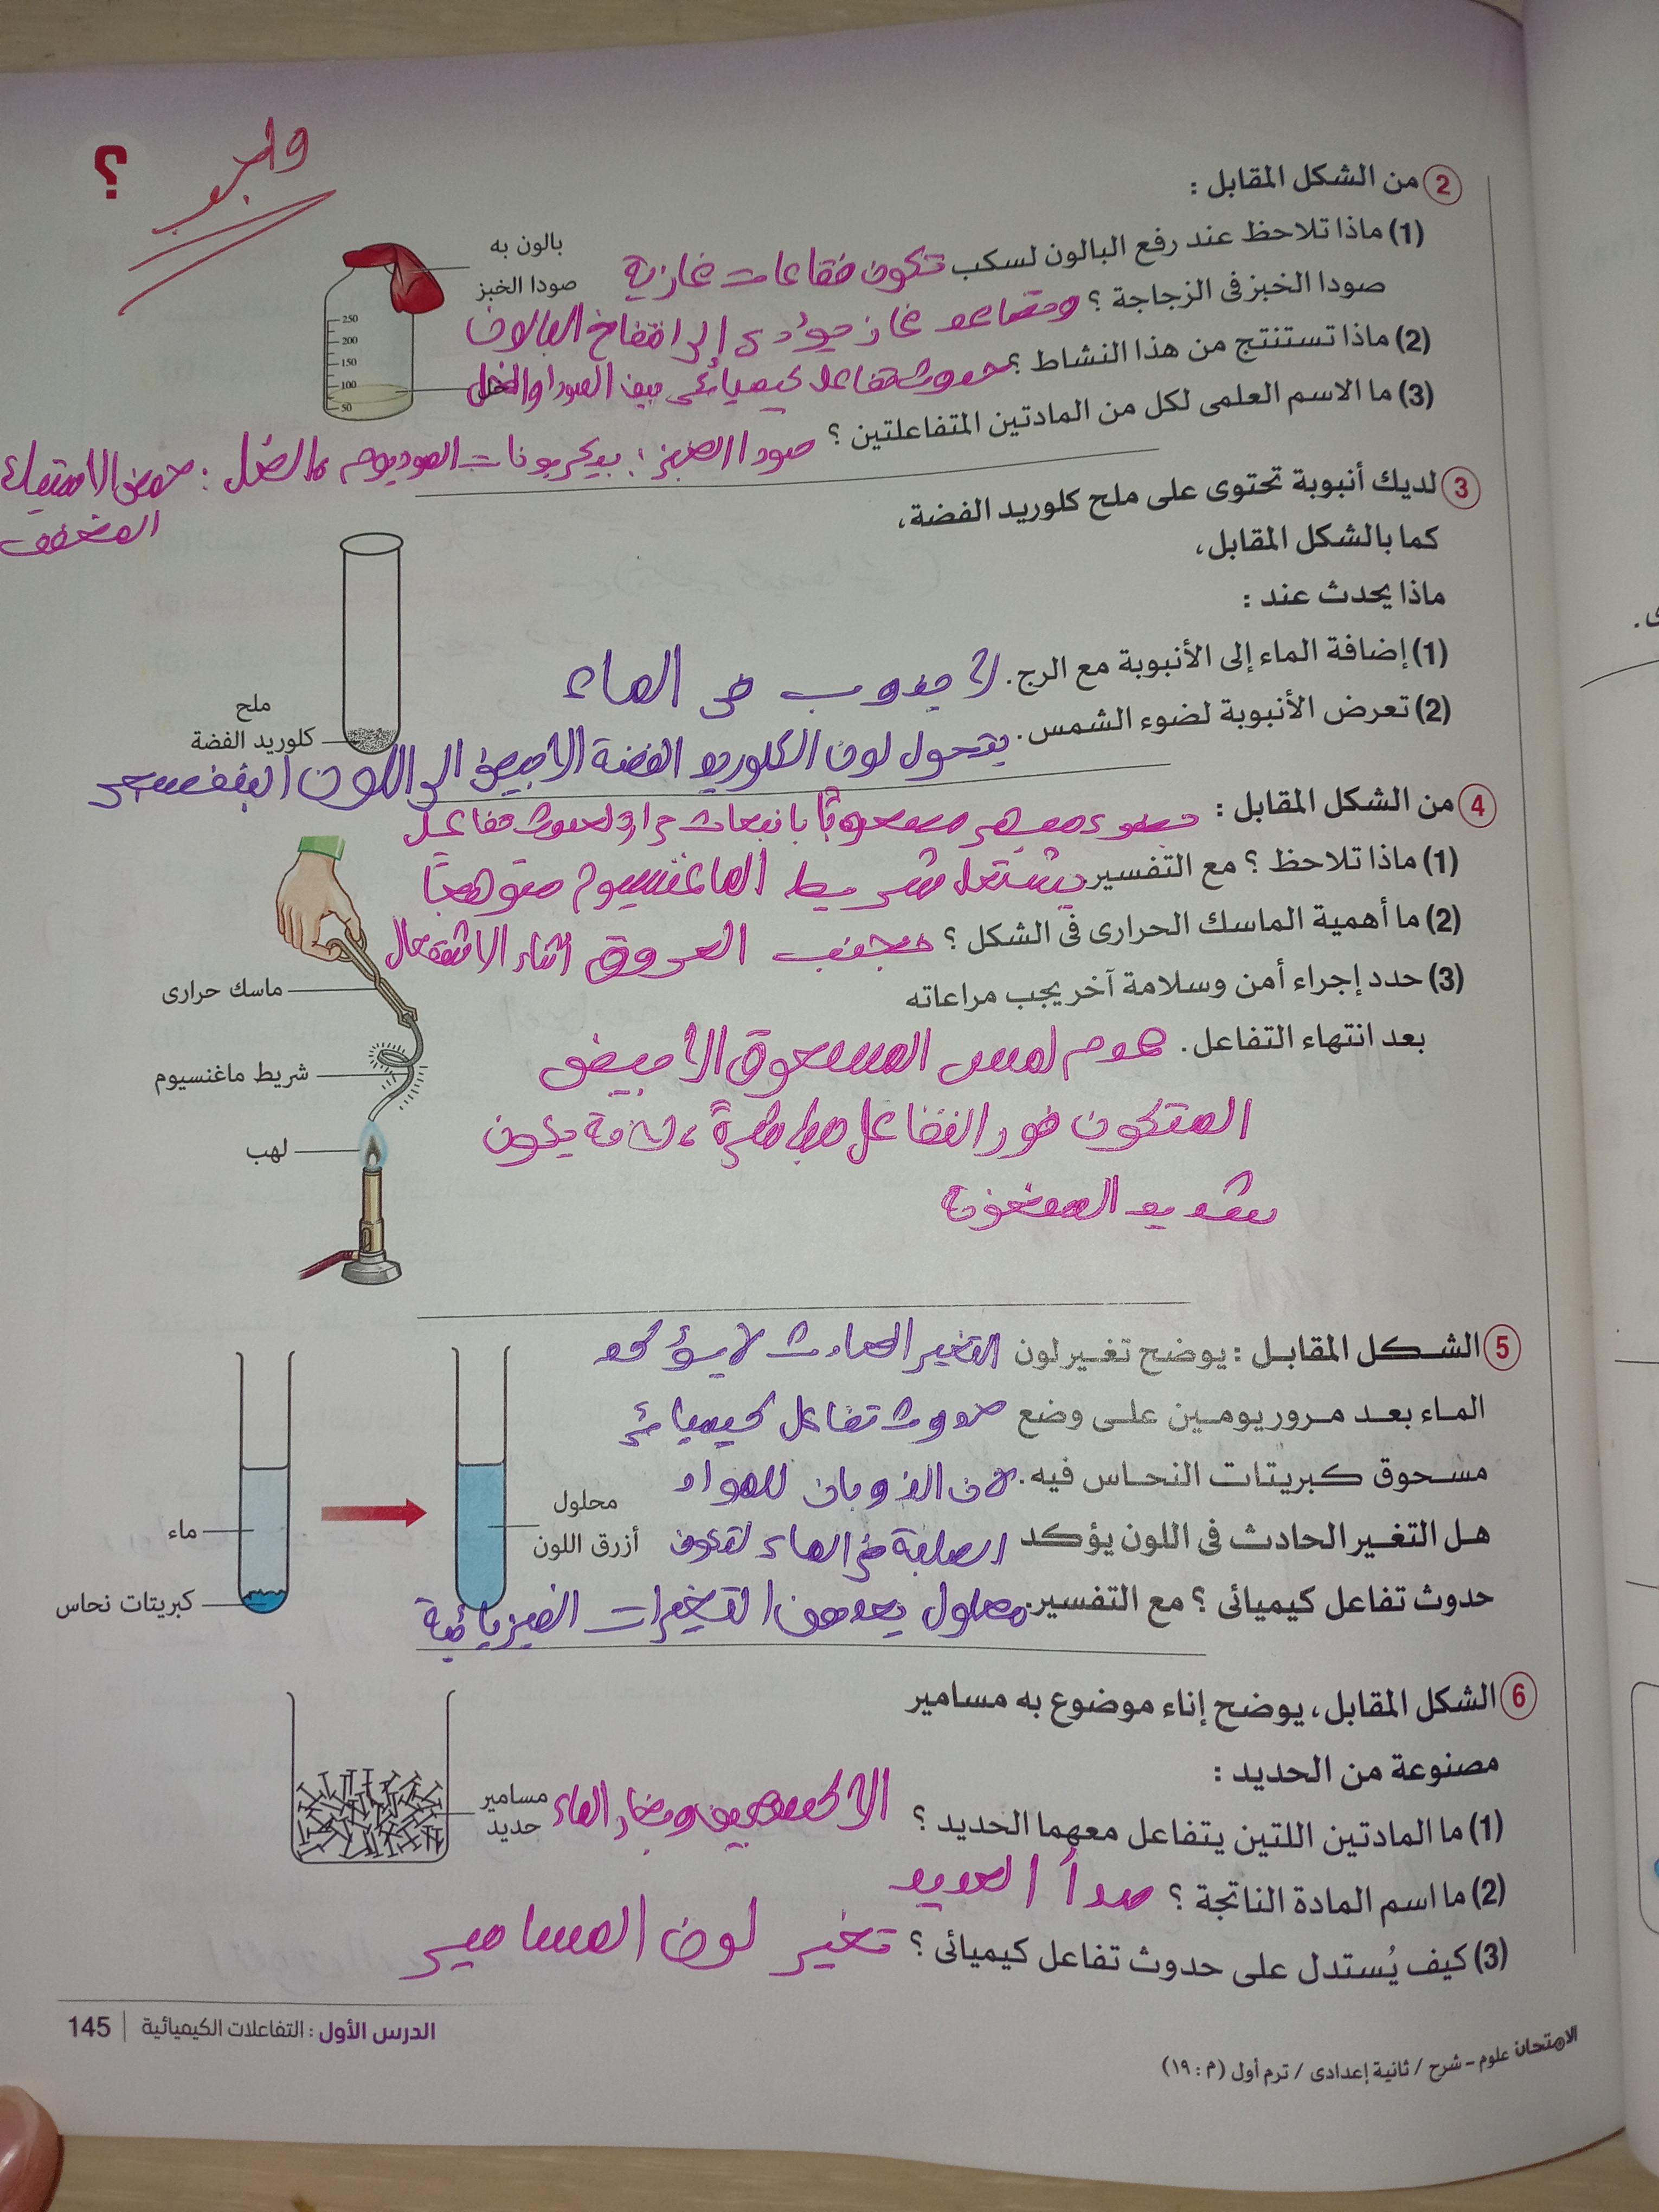 واجب
؟
2 من الشكل المقابل :
(1) ماذا تلاحظ عند رفع البالون لسكب تكون فقاعات غازية
صودا الخبز فى الزجاجة ؟ وتصاعد غاز يؤدى إلى انتفاخ البالون
(2) ماذا تستنتج من هذا النشاط ؟ حدوث تفاعل كيميائى بين الصودا والخل
(3) ما الاسم العلمى لكل من المادتين المتفاعلتين ؟ صودا الخبز : بيكربونات الصوديوم ، الخل : حمض الاستيك
المخفف
بالون به
صودا الخبز
250
200
150
100
50
3 لديك أنبوبة تحتوى على ملح كلوريد الفضة،
كما بالشكل المقابل،
ماذا يحدث عند :
(1) إضافة الماء إلى الأنبوبة مع الرج. لا يذوب فى الماء
(2) تعرض الأنبوبة لضوء الشمس. يتحول لون الكلوريد الفضة الابيض الى اللون البنفسجى
ملح
كلوريد الفضة
4 من الشكل المقابل : بضوء مبهر مصحوبًا بانبعاث حرارة لحدوث تفاعل
(1) ماذا تلاحظ ؟ مع التفسير يشتعل شريط الماغنسيوم متوهجًا
(2) ما أهمية الماسك الحرارى فى الشكل ؟ تجنب الحروق اثناء الاشتعال
(3) حدد إجراء أمن وسلامة آخر يجب مراعاته
بعد انتهاء التفاعل. عدم لمس المسحوق الأبيض
المتكون فور التفاعل مباشرةً ، لانه يكون
شديد السخونة
ماسك حرارى
شريط ماغنسيوم
لهب
5 الشكل المقابل : يوضح تغير لون التغير الحادث لا يؤكد
الماء بعد مرور يومين على وضع حدوث تفاعل كيميائى
مسحوق كبريتات النحاس فيه. لان الذوبان للمواد
هل التغير الحادث فى اللون يؤكد الصلبة فى الماء لتكون
حدوث تفاعل كيميائى ؟ مع التفسير. محلول يعد من التغيرات الفيزيائية
ماء
كبريتات نحاس
محلول
أزرق اللون
6 الشكل المقابل، يوضح إناء موضوع به مسامير
مصنوعة من الحديد :
(1) ما المادتين اللتين يتفاعل معهما الحديد ؟ الاكسجين وبخار الماء
(2) ما اسم المادة الناتجة ؟ صدأ الحديد
(3) كيف يُستدل على حدوث تفاعل كيميائى ؟ تغير لون المسامير
مسامير
حديد
الامتحان علوم - شرح / ثانية إعدادى / ترم أول (م : ١٩)
الدرس الأول : التفاعلات الكيميائية | 145